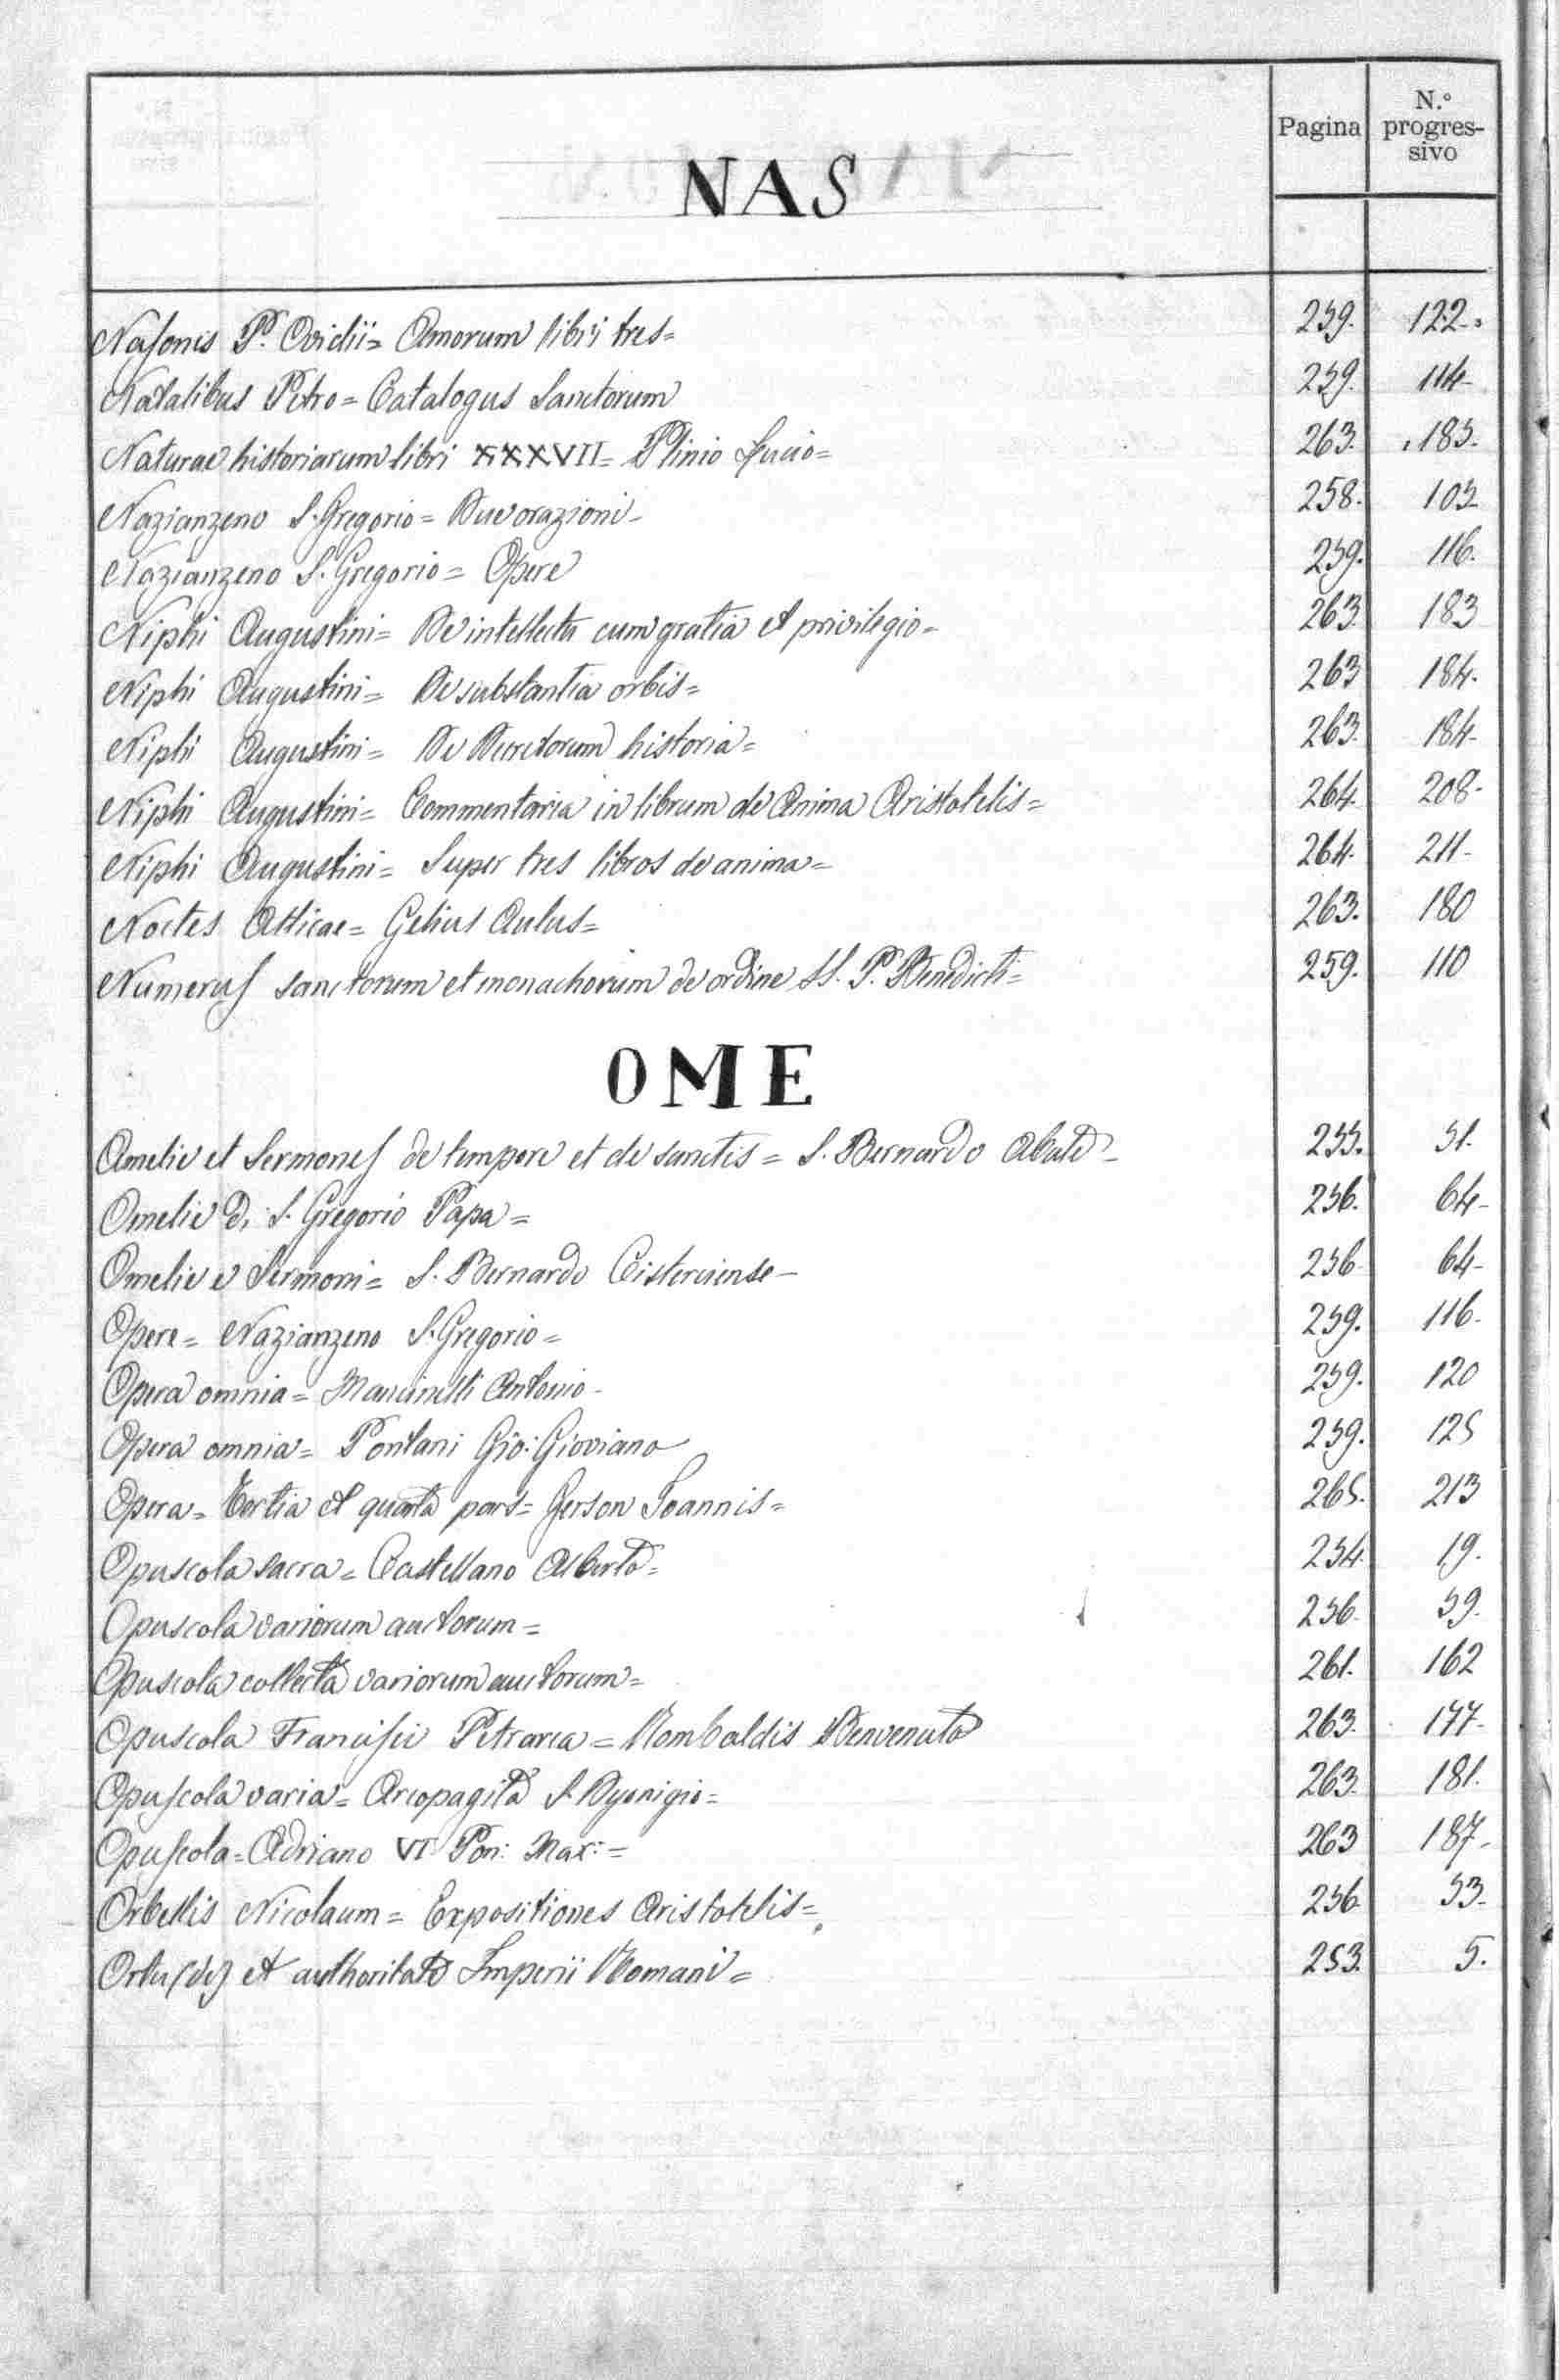 Pagina N.º progres-sivo
NAS
Nasonis P. Ovidii= Amorum libri tres= 259. 122.
Natalibus Petro= Catalogus Sanctorum 259. 114
Naturae historiarum libri XXXVII= Plinio Lucio= 263. 185.
Nazianzeno S. Gregorio= Due orazioni- 258. 103
Nazianzeno S. Gregorio= Opere 259. 116.
Niphi Augustini= De intellectu cum gratia et privilegio= 263 183
Niphi Augustini= De substantia orbis= 263 184.
Niphi Augustini= De Decretorum historia= 263. 184-
Niphi Augustini= Commentaria in librum de Anima Aristotelis= 264. 208-
Niphi Augustini= Super tres libros de anima= 264. 211-
Noctes Atticae= Gelius Aulus= 263. 180
Numerus sanctorum et monachorum de ordine SS. P. Benedicti= 259. 110
OME
Omelie et Sermones de tempore et de sanctis= S. Bernardo Abate- 255. 51.
Omelie di S. Gregorio Papa= 256. 64-
Omelie e Sermoni= S. Bernardo Cisterciense- 256 64-
Opere= Nazianzeno S. Gregorio= 259. 116.
Opera omnia= Mancinelli Antonio- 259. 120
Opera omnia= Pontani Gio: Gioviano 259. 125
Opera= Tertia et quarta pars= Gerson Joannis= 265. 213
Opuscola sacra= Castellano Alberto= 254. 19.
Opuscola variorum auctorum= 256. 59.
Opuscola collecta variorum auctorum= 261. 162
Opuscola Francisci Petrarca= Rombaldis Benvenuto 263. 177-
Opuscola varia= Areopagita S. Dyonigio= 263. 181.
Opuscola= Adriano VI Pon: Max:= 263 187-
Orbellis Nicolaum= Expositiones Aristotelis= 256 53-
Ortu (de) et authoritate Imperii Romani= 253. 5.